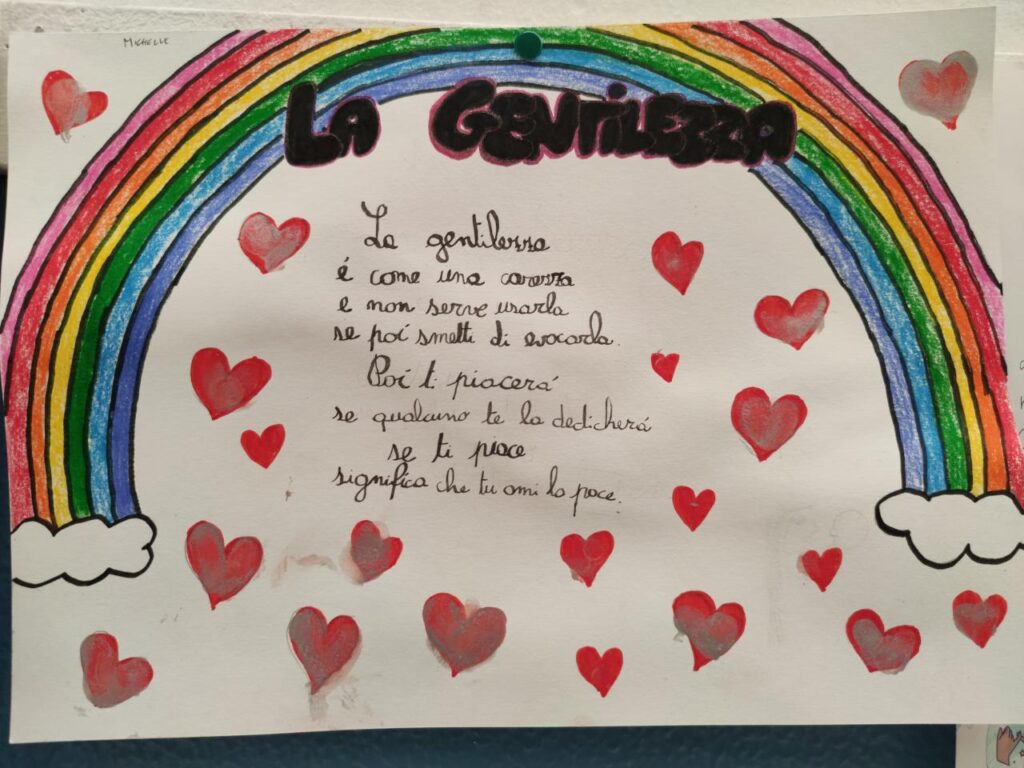 MICHELLE
LA GENTILEZZA
La gentilezza
é come una carezza
e non serve usarla
se poi smetti di evocarla.
Poi ti piacerá
se qualcuno te la dedicherá
se ti piace
significa che tu ami la pace.